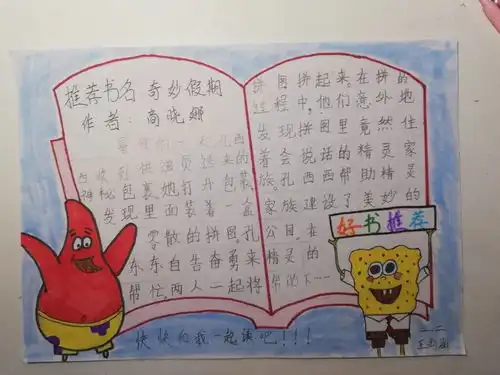 推荐书名 奇妙假期
作者：高晓姗
夏假的一天，孔西
西收到快递员送来的
神秘包裹，她打开包装
发现里面装着一盒
零散的拼图，孔
东东自告奋勇来
帮忙，两人一起将
拼图拼起来。在拼的
过程中，他们意外地
发现拼图里竟然住
着会说话的精灵家
族。孔西西帮助精灵
家族建设了美妙的
公司，在
精灵的
帮助下……
好书推荐
快快和我一起读吧！！！